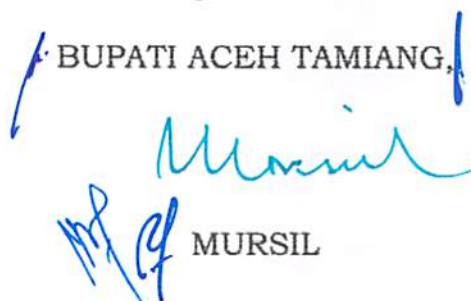 BUPATI ACEH TAMIANG,
Mursil
MURSIL